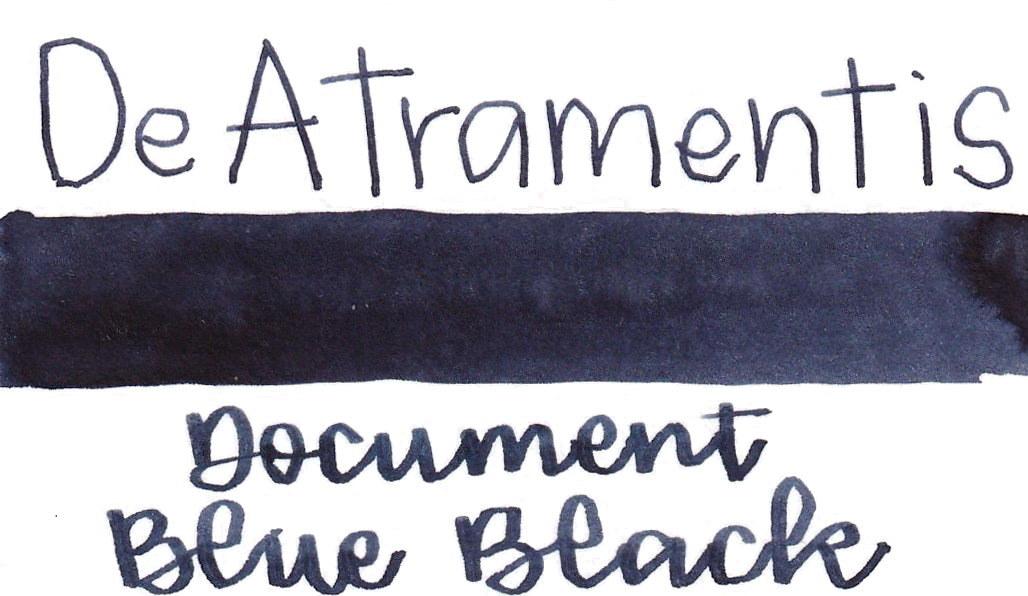 De Atramentis
Document
Blue Black